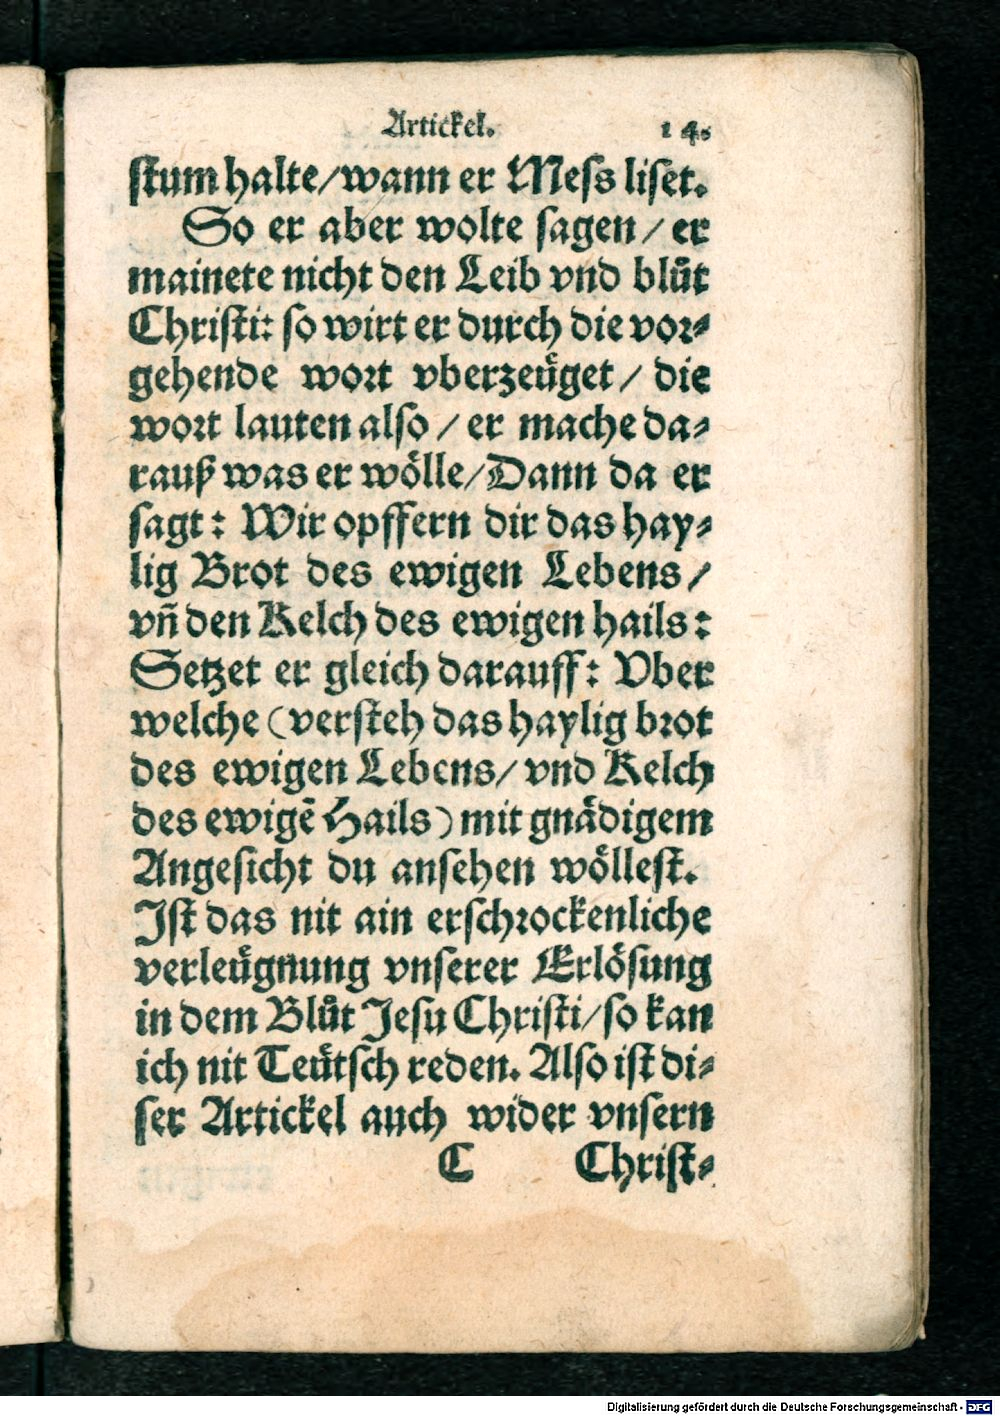 Artickel. 14.
stum halte/wann er Mess liset.
So er aber wolte sagen/er
mainete nicht den Leib vnd blůt
Christi: so wirt er durch die vor⸗
gehende wort vberzeüget/die
wort lauten also/er mache da⸗
rauß was er wölle/Dann da er
sagt: Wir opffern dir das hay⸗
lig Brot des ewigen Lebens/
vñ den Kelch des ewigen hails:
Setzet er gleich darauff: Vber
welche (versteh das haylig brot
des ewigen Lebens/vnd Kelch
des ewigē Hails) mit gnädigem
Angesicht du ansehen wöllest.
Ist das nit ain erschrockenliche
verleügnung vnserer Erlösung
in dem Blůt Jesu Christi/so kan
ich nit Teütsch reden. Also ist di⸗
ser Artickel auch wider vnsern
C Christ⸗
Digitalisierung gefördert durch die Deutsche Forschungsgemeinschaft - DFG